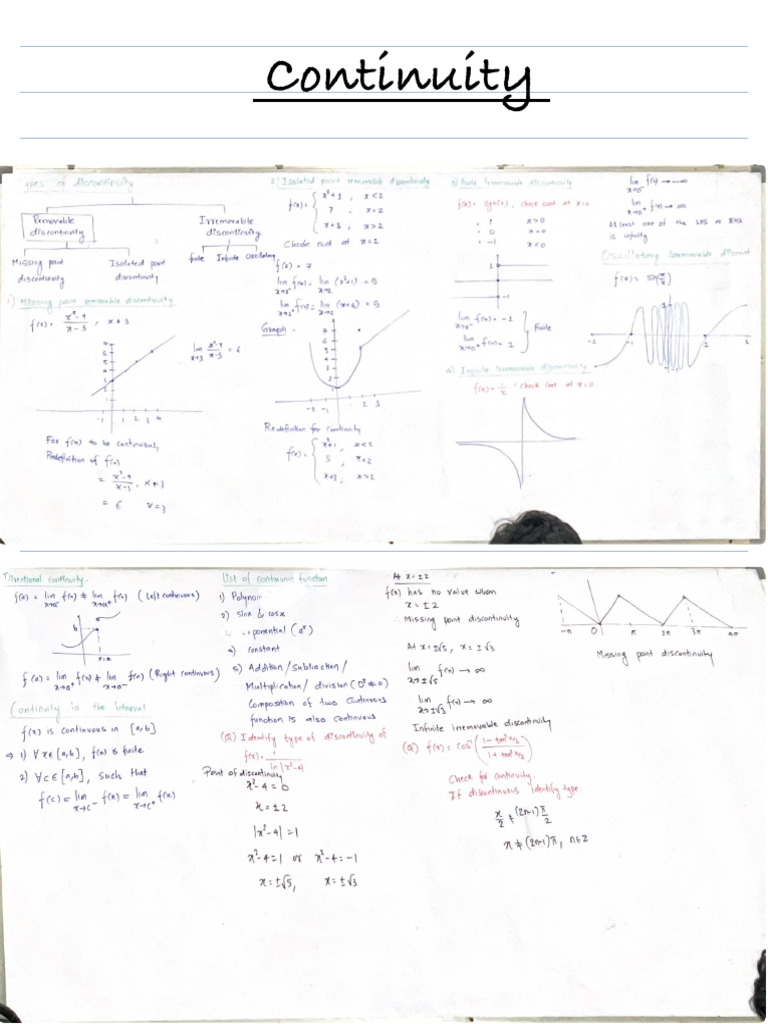 Continuity
Types of discontinuity
Removable discontinuity
Irremovable discontinuity
Missing point discontinuity
Isolated point discontinuity
finite Infinite Oscillating
1) Missing point removable discontinuity
f(x) = x²-9/x-3 , x≠3
lim x→3 x²-9/x-3 = 6
For f(x) to be continuous,
Redefinition of f(x)
= x²-9/x-3 , x≠3
= 6 x=3
2) Isolated point removable discontinuity
f(x) = { x²+1 , x<2
7 , x=2
x+3 , x>2
Check cont at x=2
f(2) = 7
lim x→2⁻ f(x) = lim x→2 (x²+1) = 5
lim x→2⁺ f(x) = lim x→2 (x+3) = 5
Graph
Redefinition for continuity
f(x) = { x²+1 , x<2
5 ; x=2
x+3 ; x>2
3) Finite Irremovable discontinuity
f(x) = sgn(x) , check cont at x=0
1 x>0
0 x=0
-1 x<0
lim x→0⁻ f(x) = -1
lim x→0⁺ f(x) = 1
Finite
4) Infinite Irremovable discontinuity
f(x) = 1/x , check cont at x=0
lim x→0⁻ f(x) → -∞
lim x→0⁺ f(x) → ∞
At least one of the LHS or RHS
is infinity
Oscillatory Irremovable discont
Directional continuity.
f(a) = lim x→a⁻ f(x) ≠ lim x→a⁺ f(x) (Left continuous)
b
x=a
f(a) = lim x→a⁺ f(x) ≠ lim x→a⁻ f(x) (Right continuous)
Continuity in the interval
f(x) is continuous in [a,b]
⇒ 1) ∀ x∈[a,b], f(x) is finite
2) ∀ c∈[a,b], such that
f(c) = lim x→c⁻ f(x) = lim x→c⁺ f(x)
List of continuous function
1) Polynom
2) sinx & cosx
ponential (aˣ)
4) constant
5) Addition/Subtraction/
Multiplication/division (Dʳ≠0)
Composition of two continuous
function is also continuous
(Q) Identify type of discontinuity of
f(x) = 1/ln|x²-4|
Point of discontinuity
x²-4=0
x=±2
|x²-4|=1
x²-4=1 or x²-4=-1
x=±√5, x=±√3
At x=±2
f(x) has no value when
x=±2
∴ Missing point discontinuity
At x=±√5, x=±√3
lim x→±√5 f(x) → ∞
lim x→±√3 f(x) → ∞
Infinite irremovable discontinuity
(Q) f(x) = cos⁻¹(1-tan²x/2 / 1+tan²x/2)
Check for continuity.
If discontinuous identify type
x/2 ≠ (2n-1)π/2
x≠(2n-1)π, n∈Z
-π 0 π 2π 3π 4π
Missing point discontinuity